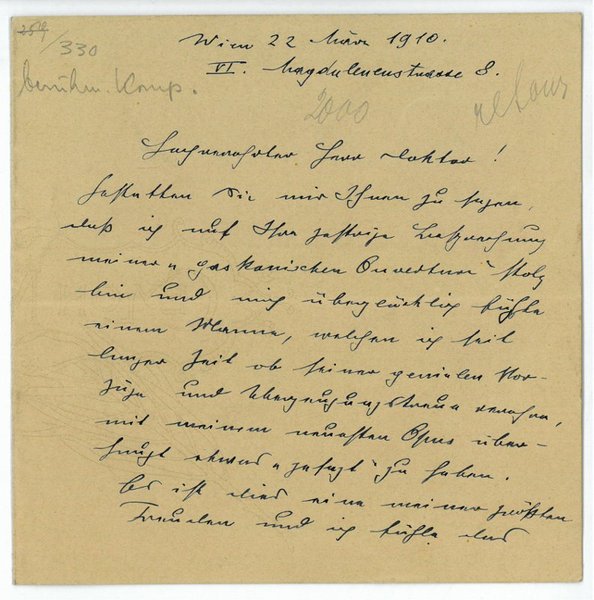 259/330
berühm. Komp.
2000
retour
Wien 22 März 1910.
VI. Magdalenenstrasse 8.
Hochverehrter Herr Doktor!
Gestatten Sie mir Ihnen zu sagen,
daß ich auf Ihre gestrige Besprechung
meiner „gaskonischen Ouverture“ stolz
bin und mich überglücklich fühle
einem Manne, welchen ich seit
langer Zeit ob seiner genialen Vor-
züge und Überzeugungstreue verehre,
mit meinem neuesten Opus über-
haupt etwas „gesagt“ zu haben.
Es ist dies eine meiner größten
Freuden und ich fühle das